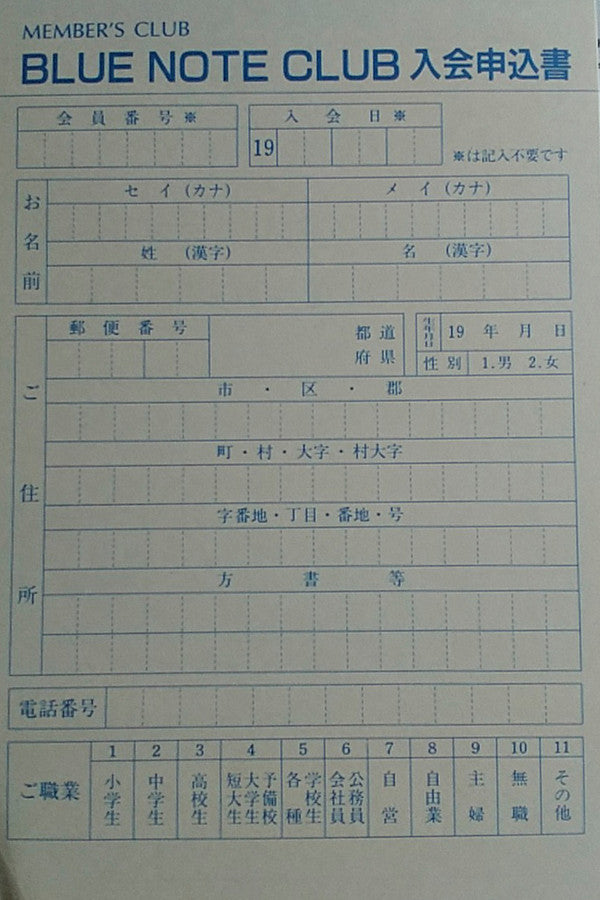 MEMBER'S CLUB
BLUE NOTE CLUB 入会申込書
会員番号※
入会日※
19
※は記入不要です
お名前
セイ(カナ)
メイ(カナ)
姓(漢字)
名(漢字)
ご住所
郵便番号
都道
府県
生年月日
19 年 月 日
性別
1.男 2.女
市・区・郡
町・村・大字・村大字
字番地・丁目・番地・号
方書等
電話番号
ご職業
1 2 3 4 5 6 7 8 9 10 11
小学生
中学生
高校生
予備校
大学生
短大生
学校生
各種
公務員
会社員
自営
自由業
主婦
無職
その他